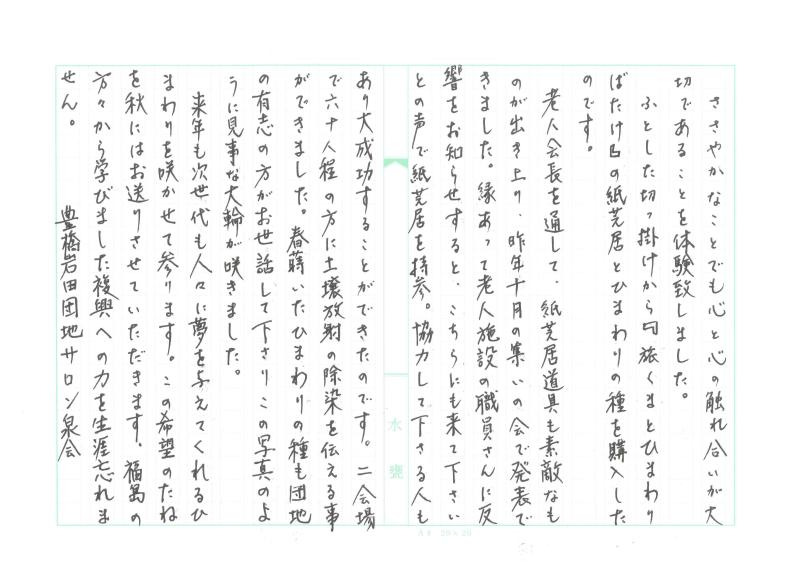 ささやかなことでも心と心の触れ合いが大
切であることを体験致しました。
ふとした切っ掛けから『旅くまとひまわり
ばたけ』の紙芝居とひまわりの種を購入した
のです。
老人会長を通して、紙芝居道具も素敵なも
のが出き上り、昨年十月の集いの会で発表で
きました。縁あって老人施設の職員さんに反
響をお知らせすると、こちらにも来て下さい
との声で紙芝居を持参。協力して下さる人も
水甕
A4 20×20
あり大成功することができたのです。二会場
で六十人程の方に土壌放射の除染を伝える事
ができました。春蒔いたひまわりの種も団地
の有志の方がお世話して下さりこの写真のよ
うに見事な大輪が咲きました。
来年も次世代も人々に夢を与えてくれるひ
まわりを咲かせて参ります。この希望のたね
を秋にはお送りさせていただきます。福島の
方々から学びました複興への力を生涯忘れま
せん。
豊橋岩田団地サロン泉会